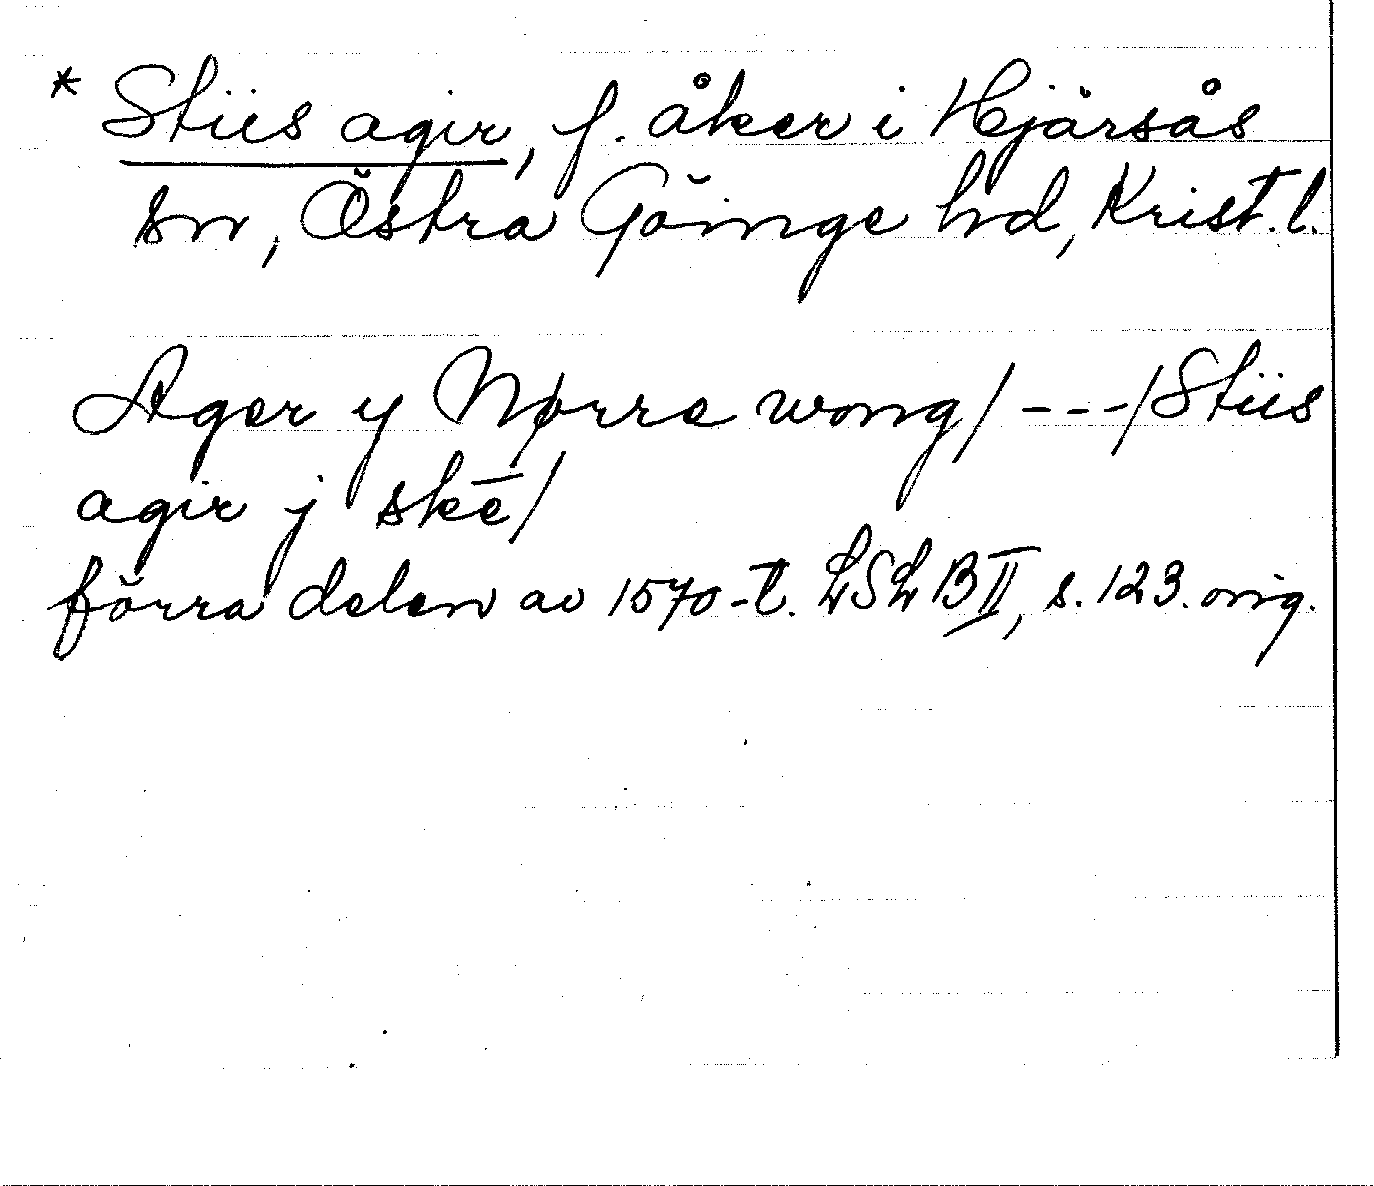 * Stiis agir, f. åker i Hjärsås
sn, Östra Göinge hd, Krist. l.
Ager y Nørre wong/ ---/Stiis
agir j skē/
förra delen av 1570-t. LSL B II, s. 123. orig.